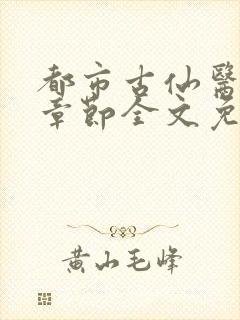 都市古仙醫
章節全文免
黄山毛峰